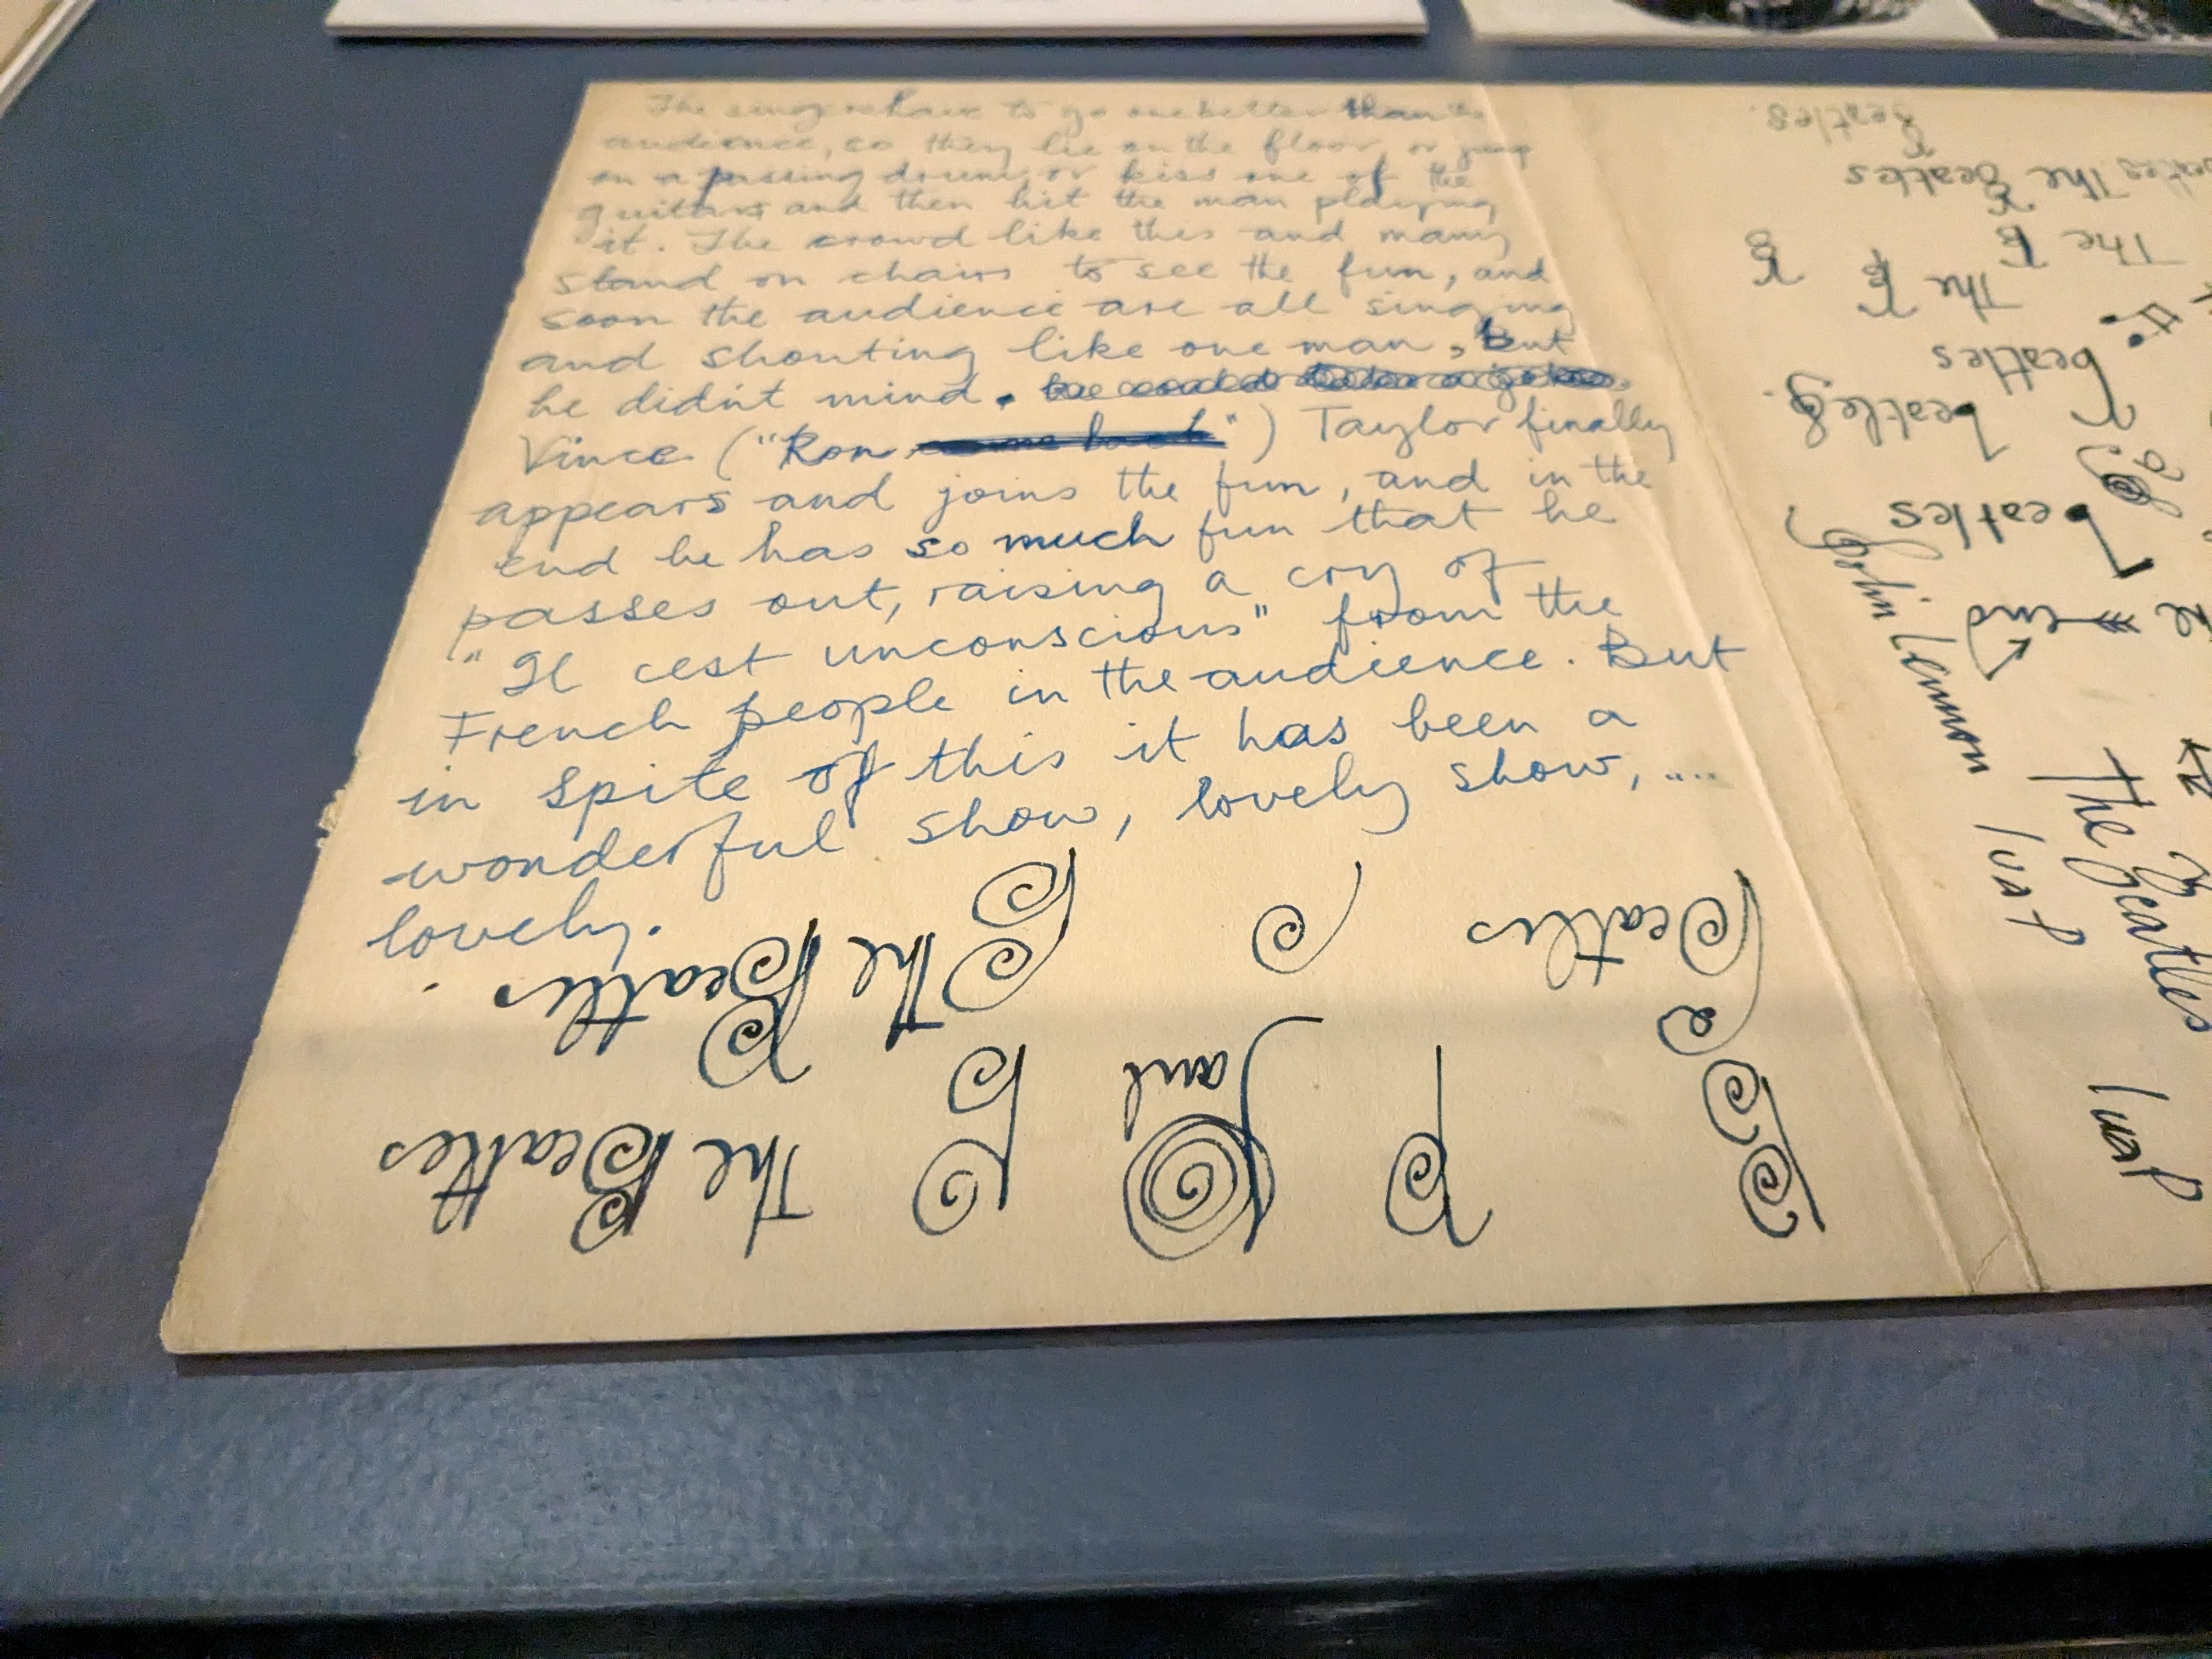 The singers have to go one better than the
audience, so they lie on the floor, or jump
on a passing drum, or kiss one of the
guitars and then hit the man playing
it. The crowd like this and many
stand on chairs to see the fun, and
soon the audience are all singing
and shouting like one man, But
he didn't mind.
Vince ("Ron") Taylor finally
appears and joins the fun, and in the
end he has so much fun that he
passes out, raising a cry of
"Il cest unconscious" from the
French people in the audience. But
in spite of this it has been a
wonderful show, lovely show, ....
lovely.
The Beatles
The Beatles.
Beatles
P
B
B
Beatles.
The Beatles
The B
The B
beatles
beatles.
beatles
end
John Lennon
The Beatles